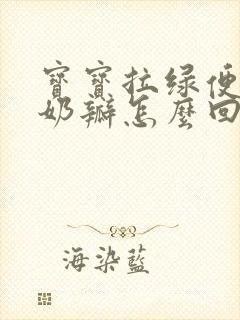 寶寶拉绿便
奶瓣怎麼回
海染藍